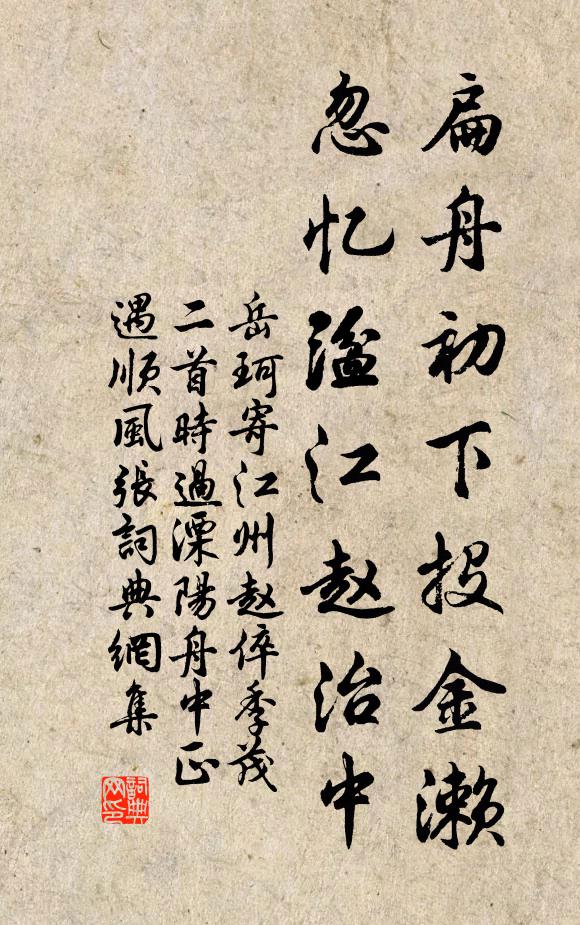 扁舟初下投金濑
忽忆湓江赵治中
岳珂寄江州赵倅季茂
二首時過溧陽舟中正
遇順風張詞典網集
詞典
网印